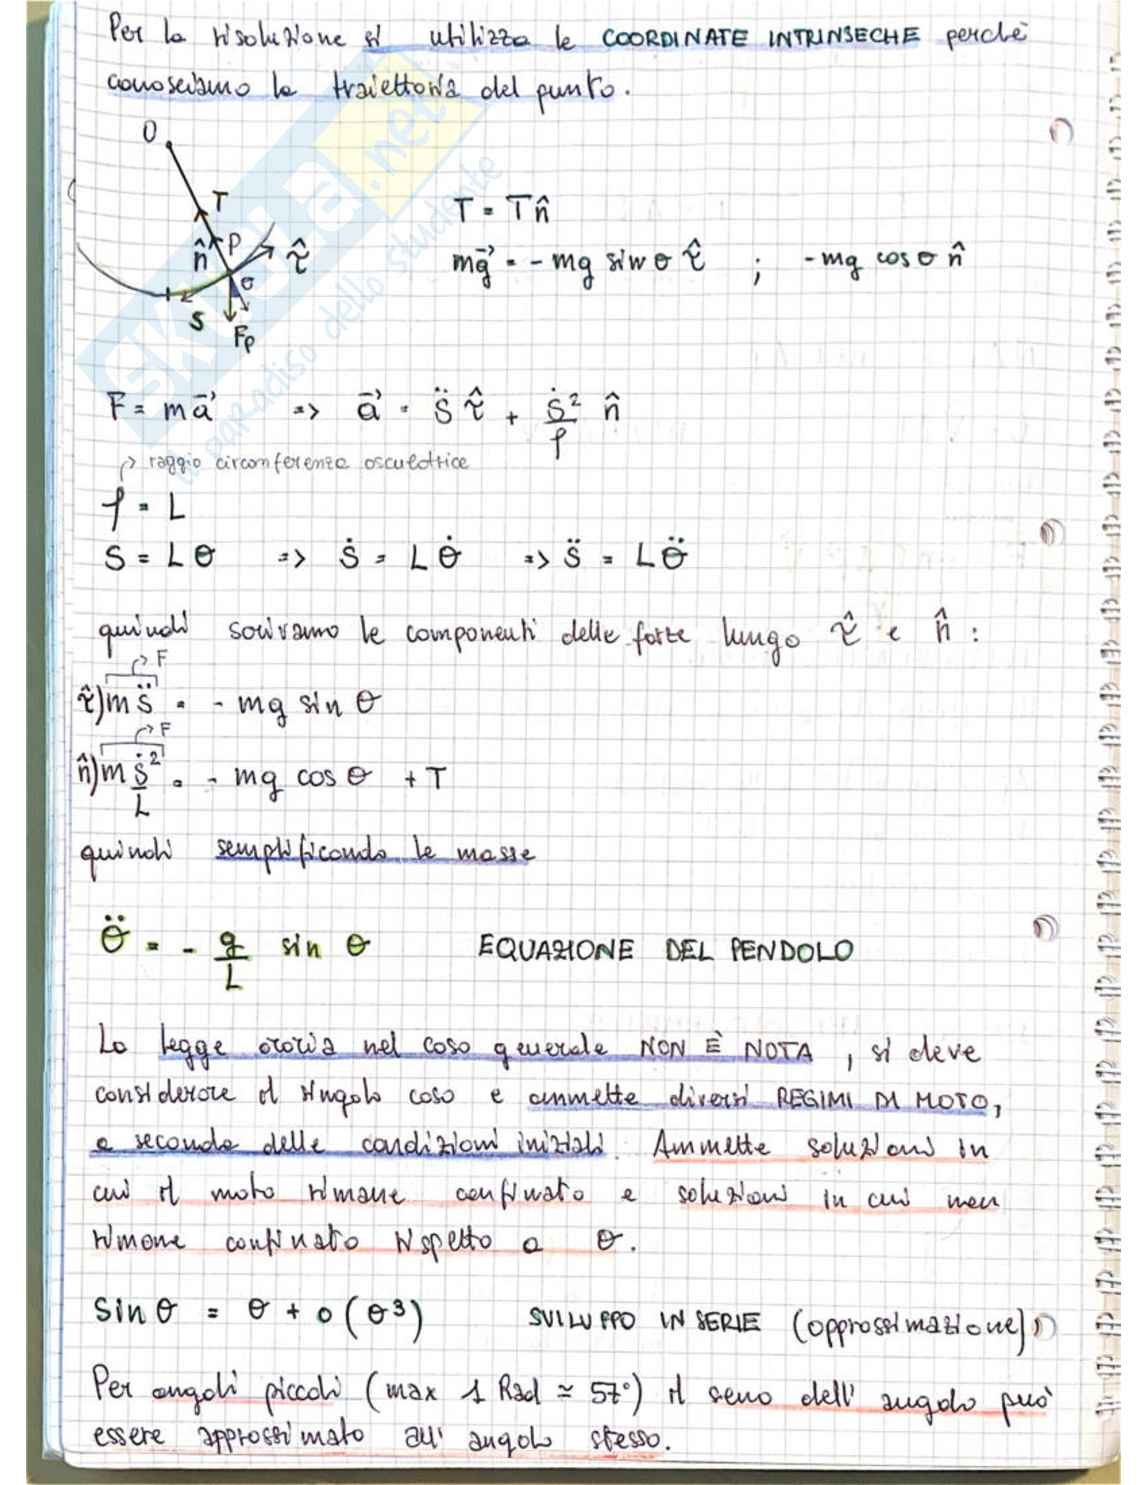 Per la risoluzione si utilizza le COORDINATE INTRINSECHE perchè
conosciamo la traiettoria del punto.
O
T
n̂ P τ̂
θ
S
Fp
T = T n̂
mg⃗ = - mg sin θ τ̂ ; - mg cos θ n̂
F = m a⃗ => a⃗ = s̈ τ̂ + ṡ²/ρ n̂
↱ raggio circonferenza osculatrice
ρ = L
S = Lθ => ṡ = Lθ̇ => s̈ = Lθ̈
quindi scriviamo le componenti delle forze lungo τ̂ e n̂ :
↱ F
τ̂) m s̈ = - mg sin θ
↱ F
n̂) m ṡ²/L = - mg cos θ + T
quindi semplificando le masse
θ̈ = - g/L sin θ EQUAZIONE DEL PENDOLO
La legge oraria nel caso generale NON È NOTA , si deve
considerare il singolo caso e ammette diversi REGIMI DI MOTO,
a seconda delle condizioni iniziali. Ammette soluzioni in
cui il moto rimane confinato e soluzioni in cui non
rimane confinato rispetto a θ.
sin θ = θ + o (θ³) SVILUPPO IN SERIE (approssimazione)
Per angoli piccoli (max 1 Rad ≃ 57°) il seno dell' angolo può
essere approssimato all' angolo stesso.
SKUOLA.net
il paradiso dello studente